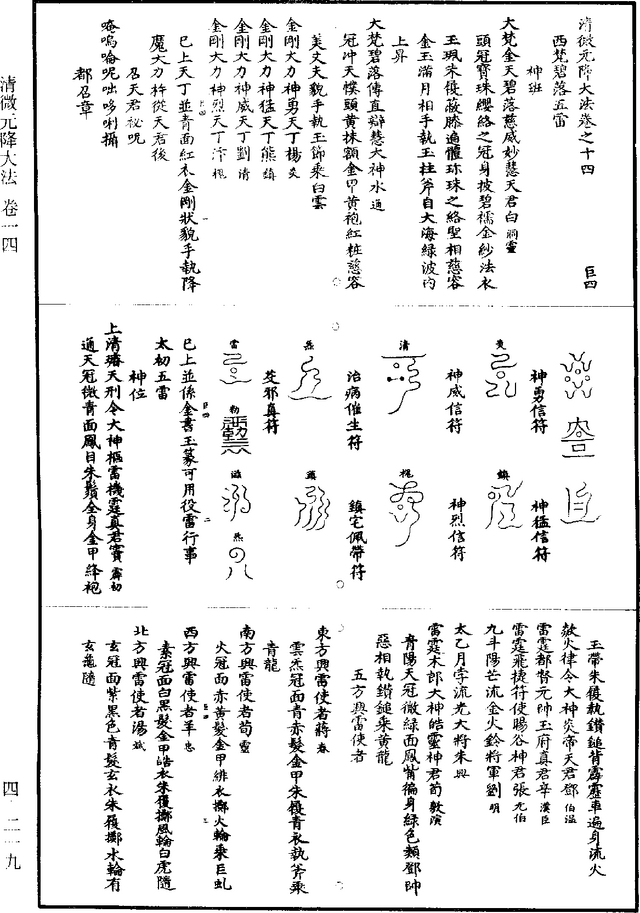 清微元降大法卷之十四 巨四
西梵碧落五雷
神班
大梵金天碧落慈威妙慧天君白嗣靈
頭冠寶珠纓絡之冠身披碧襦金紗法衣
玉珮朱履蔽膝遍體珎珠之絡聖相慈容
金玉滿月相手執玉柱斧自大海綠波內
上昇
大梵碧落傳直辯慧大神水通
冠冲天幞頭黃抹額金甲黃袍紅桩慈容
美丈夫貌手執玉節乘白雲
金剛大力神勇天丁楊炎
金剛大力神猛天丁熊鎮
金剛大力神威天丁劉清
金剛大力神烈天丁汴槐
已上天丁並青面紅衣金剛狀貌手執降
魔大力杵從天君後
召天君祕呪
唵嗚㖮呢咄哆唎攝
都召章
炎
神勇信符
鎮
神猛信符
清
神威信符
槐
神烈信符
治病催生符
鎮宅佩帶符
芟邪真符
已上並係金書玉篆可用役雷行事
太初五雷
神位
上清瓊天刑令大神樞雷機霆真君竇霹初
通天冠微青面鳳目朱鬚全身金甲絳袍
玉帶朱履執鑽鎚背霹靂車遍身流火
欻火律令大神炎帝天君鄧伯溫
雷霆都督元帥玉府真君辛漢臣
雷霆飛捷符使暘谷神君張元伯
九斗陽芒流金火鈴將軍劉明
太乙月孛流光大將朱興
雷霆木郎大神皓靈神君荀敦演
青陽天冠微綠面鳳觜徧身綠色類鄧帥
惡相執鑽鎚乘黃龍
五方興雷使者
東方興雷使者蔣春
雲炁冠面青赤髮金甲朱履青衣執斧乘
青龍
南方興雷使者荀靈
火冠面赤黃髮金甲緋衣擲火輪乘巨虬
西方興雷使者羊忠
素冠面白黑髮金甲皓衣朱履擲風輪白虎隨
北方興雷使者湯斌
玄冠面紫黑色青髮玄衣朱履擲水輪有
玄龜隨
清微元降大法 卷一四
四-二一九